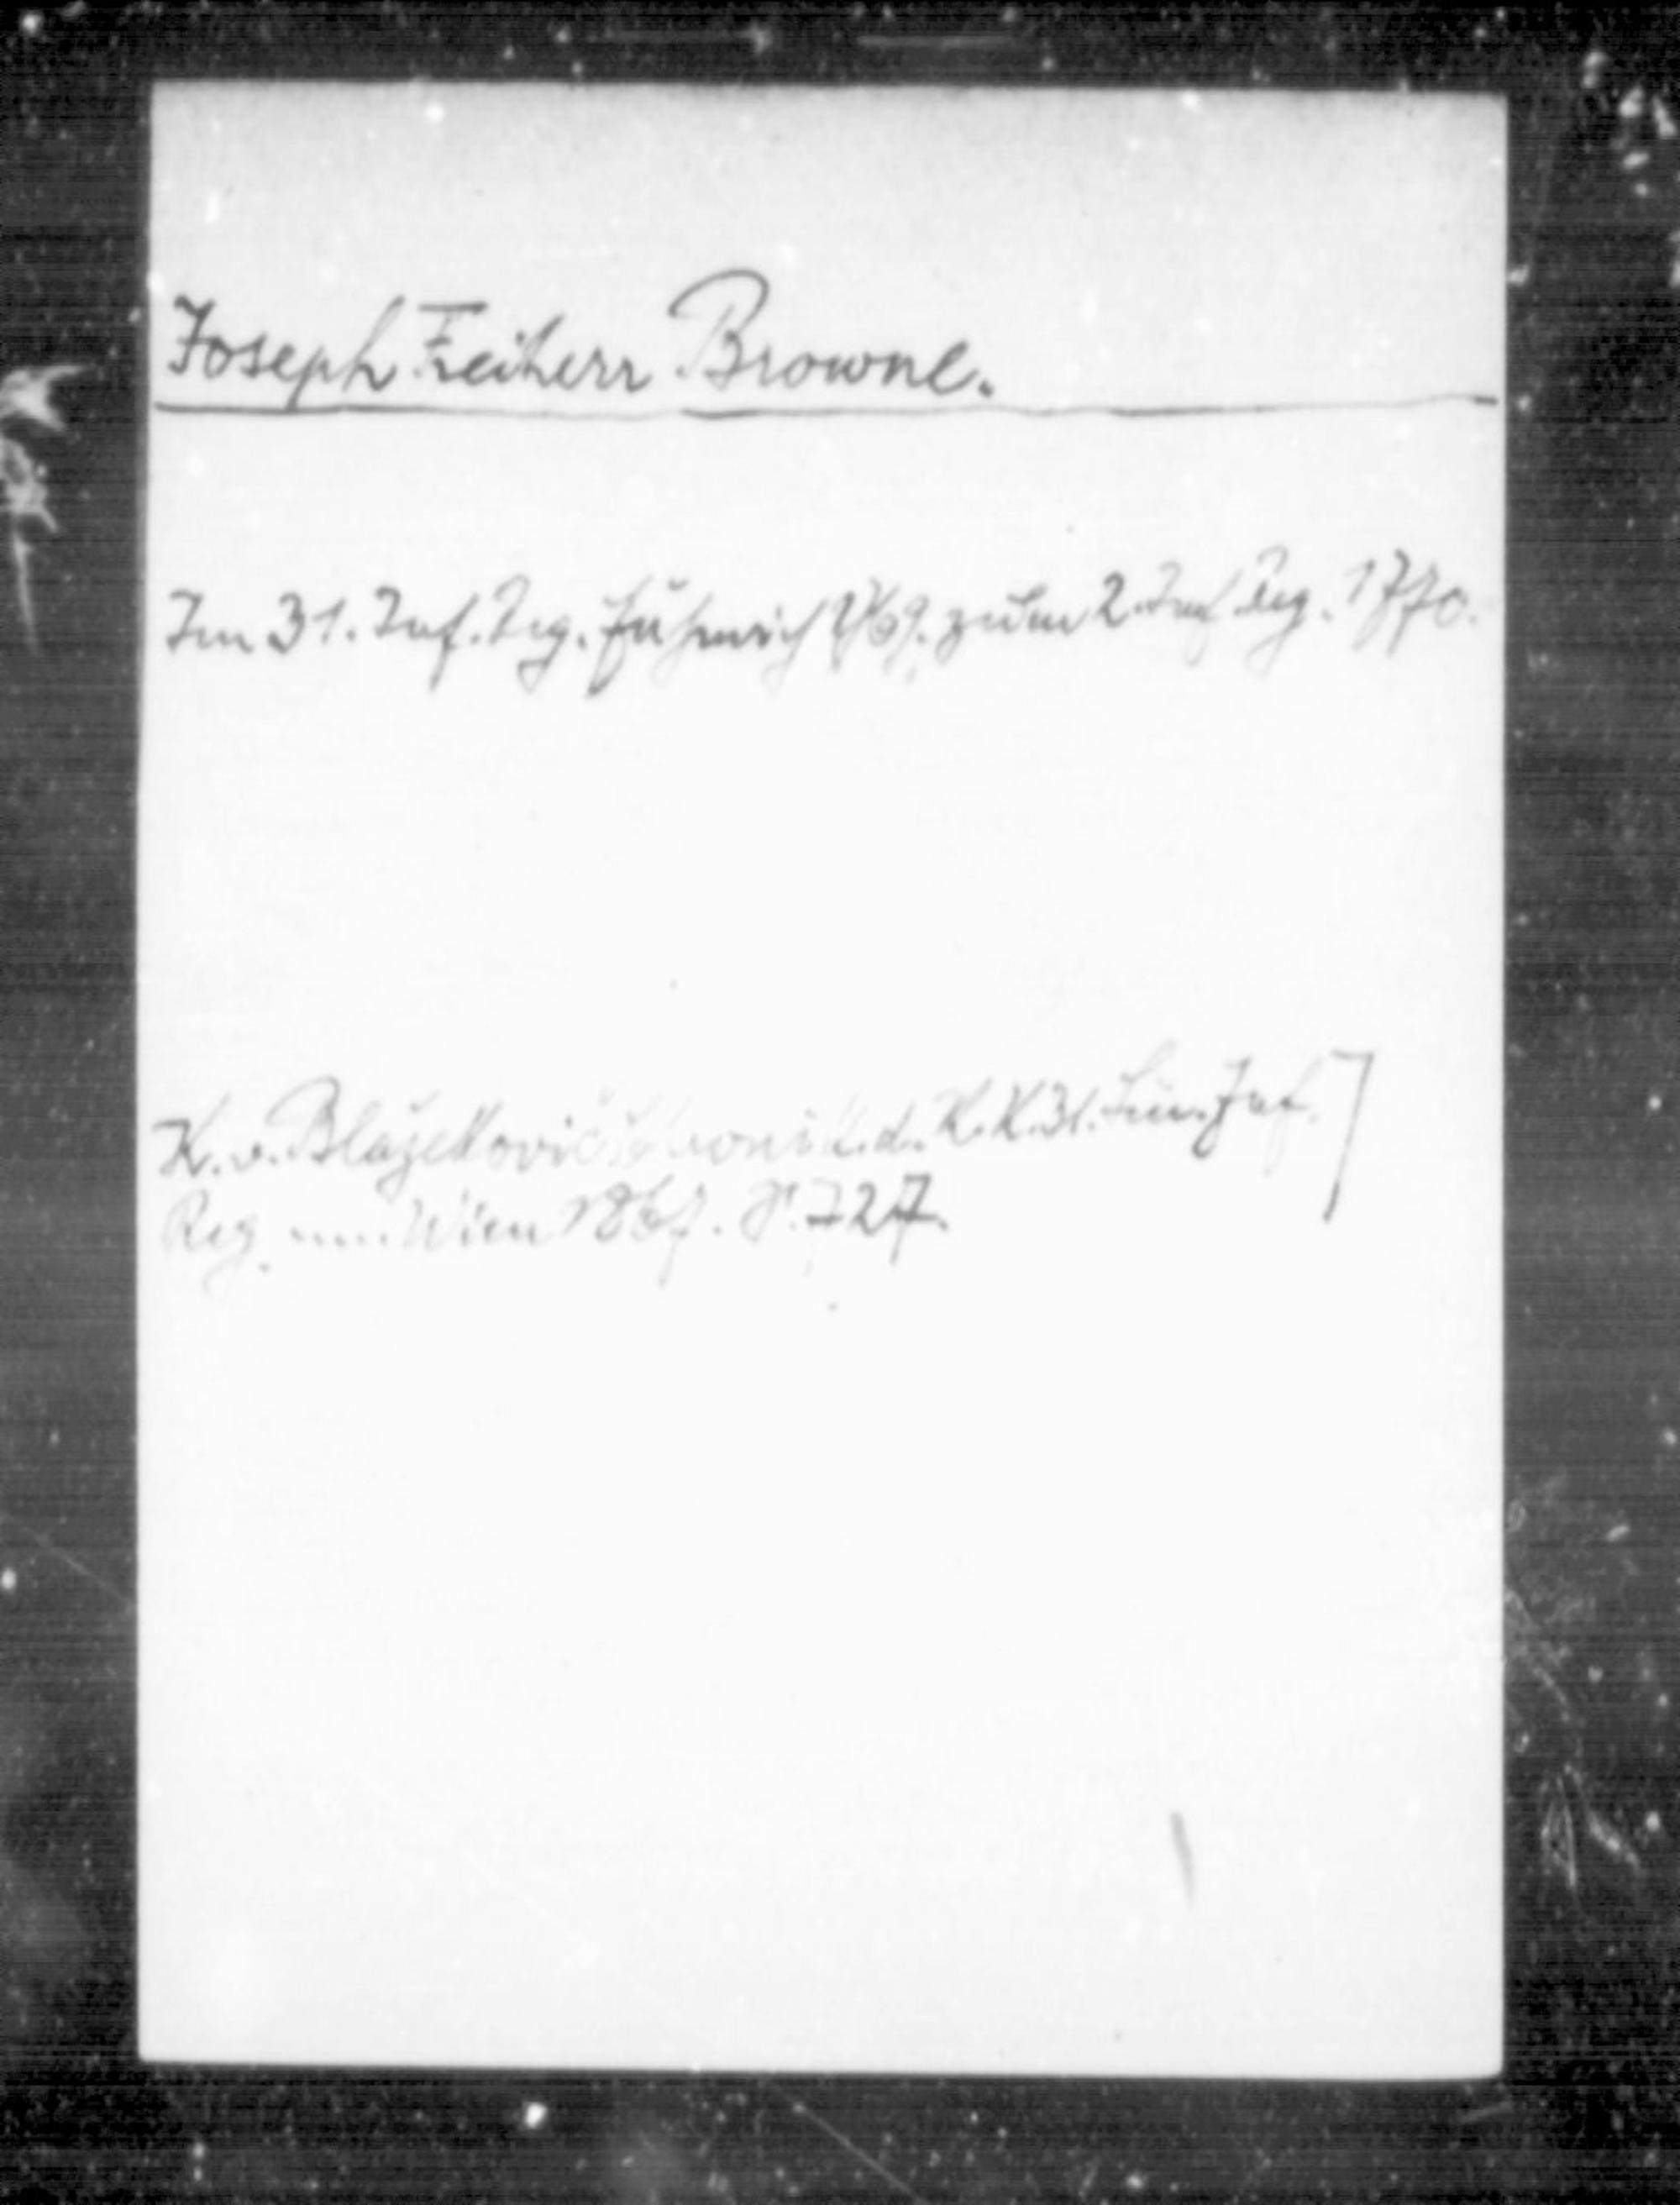 Joseph Freiherr Browne.
Im 31. Inf. Reg. Fähnrich 1769. zum 2. Inf. Reg. 1770.
K. v. Blažeković Chronik d. K. K. 31. Lin. Inf.
Reg. .... Wien 1867. S. 727.